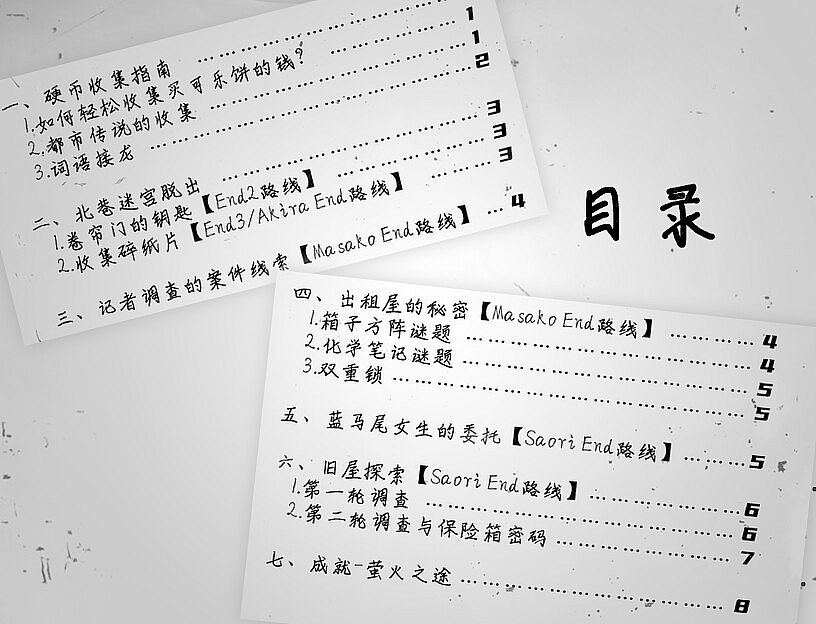 目录
一、硬币收集指南 ……………………… 1
1.如何轻松收集买可乐饼的钱? ……………… 1
2.都市传说的收集 ……………………… 2
3.词语接龙 ……………………… 3
二、北巷迷宫脱出 ……………………… 3
1.卷帘门的钥匙【End2路线】 ……………… 3
2.收集碎纸片【End3/Akira End路线】
三、记者调查的案件线索【Masako End路线】 … 4
四、出租屋的秘密【Masako End路线】 ……… 4
1.箱子方阵谜题 ……………………… 4
2.化学笔记谜题 ……………………… 5
3.双重锁 ……………………… 5
五、蓝马尾女生的委托【Saori End路线】 ……… 5
六、旧屋探索【Saori End路线】 ……………… 6
1.第一轮调查 ……………………… 6
2.第二轮调查与保险箱密码 ……………… 7
七、成就-萤火之途 ……………………… 8